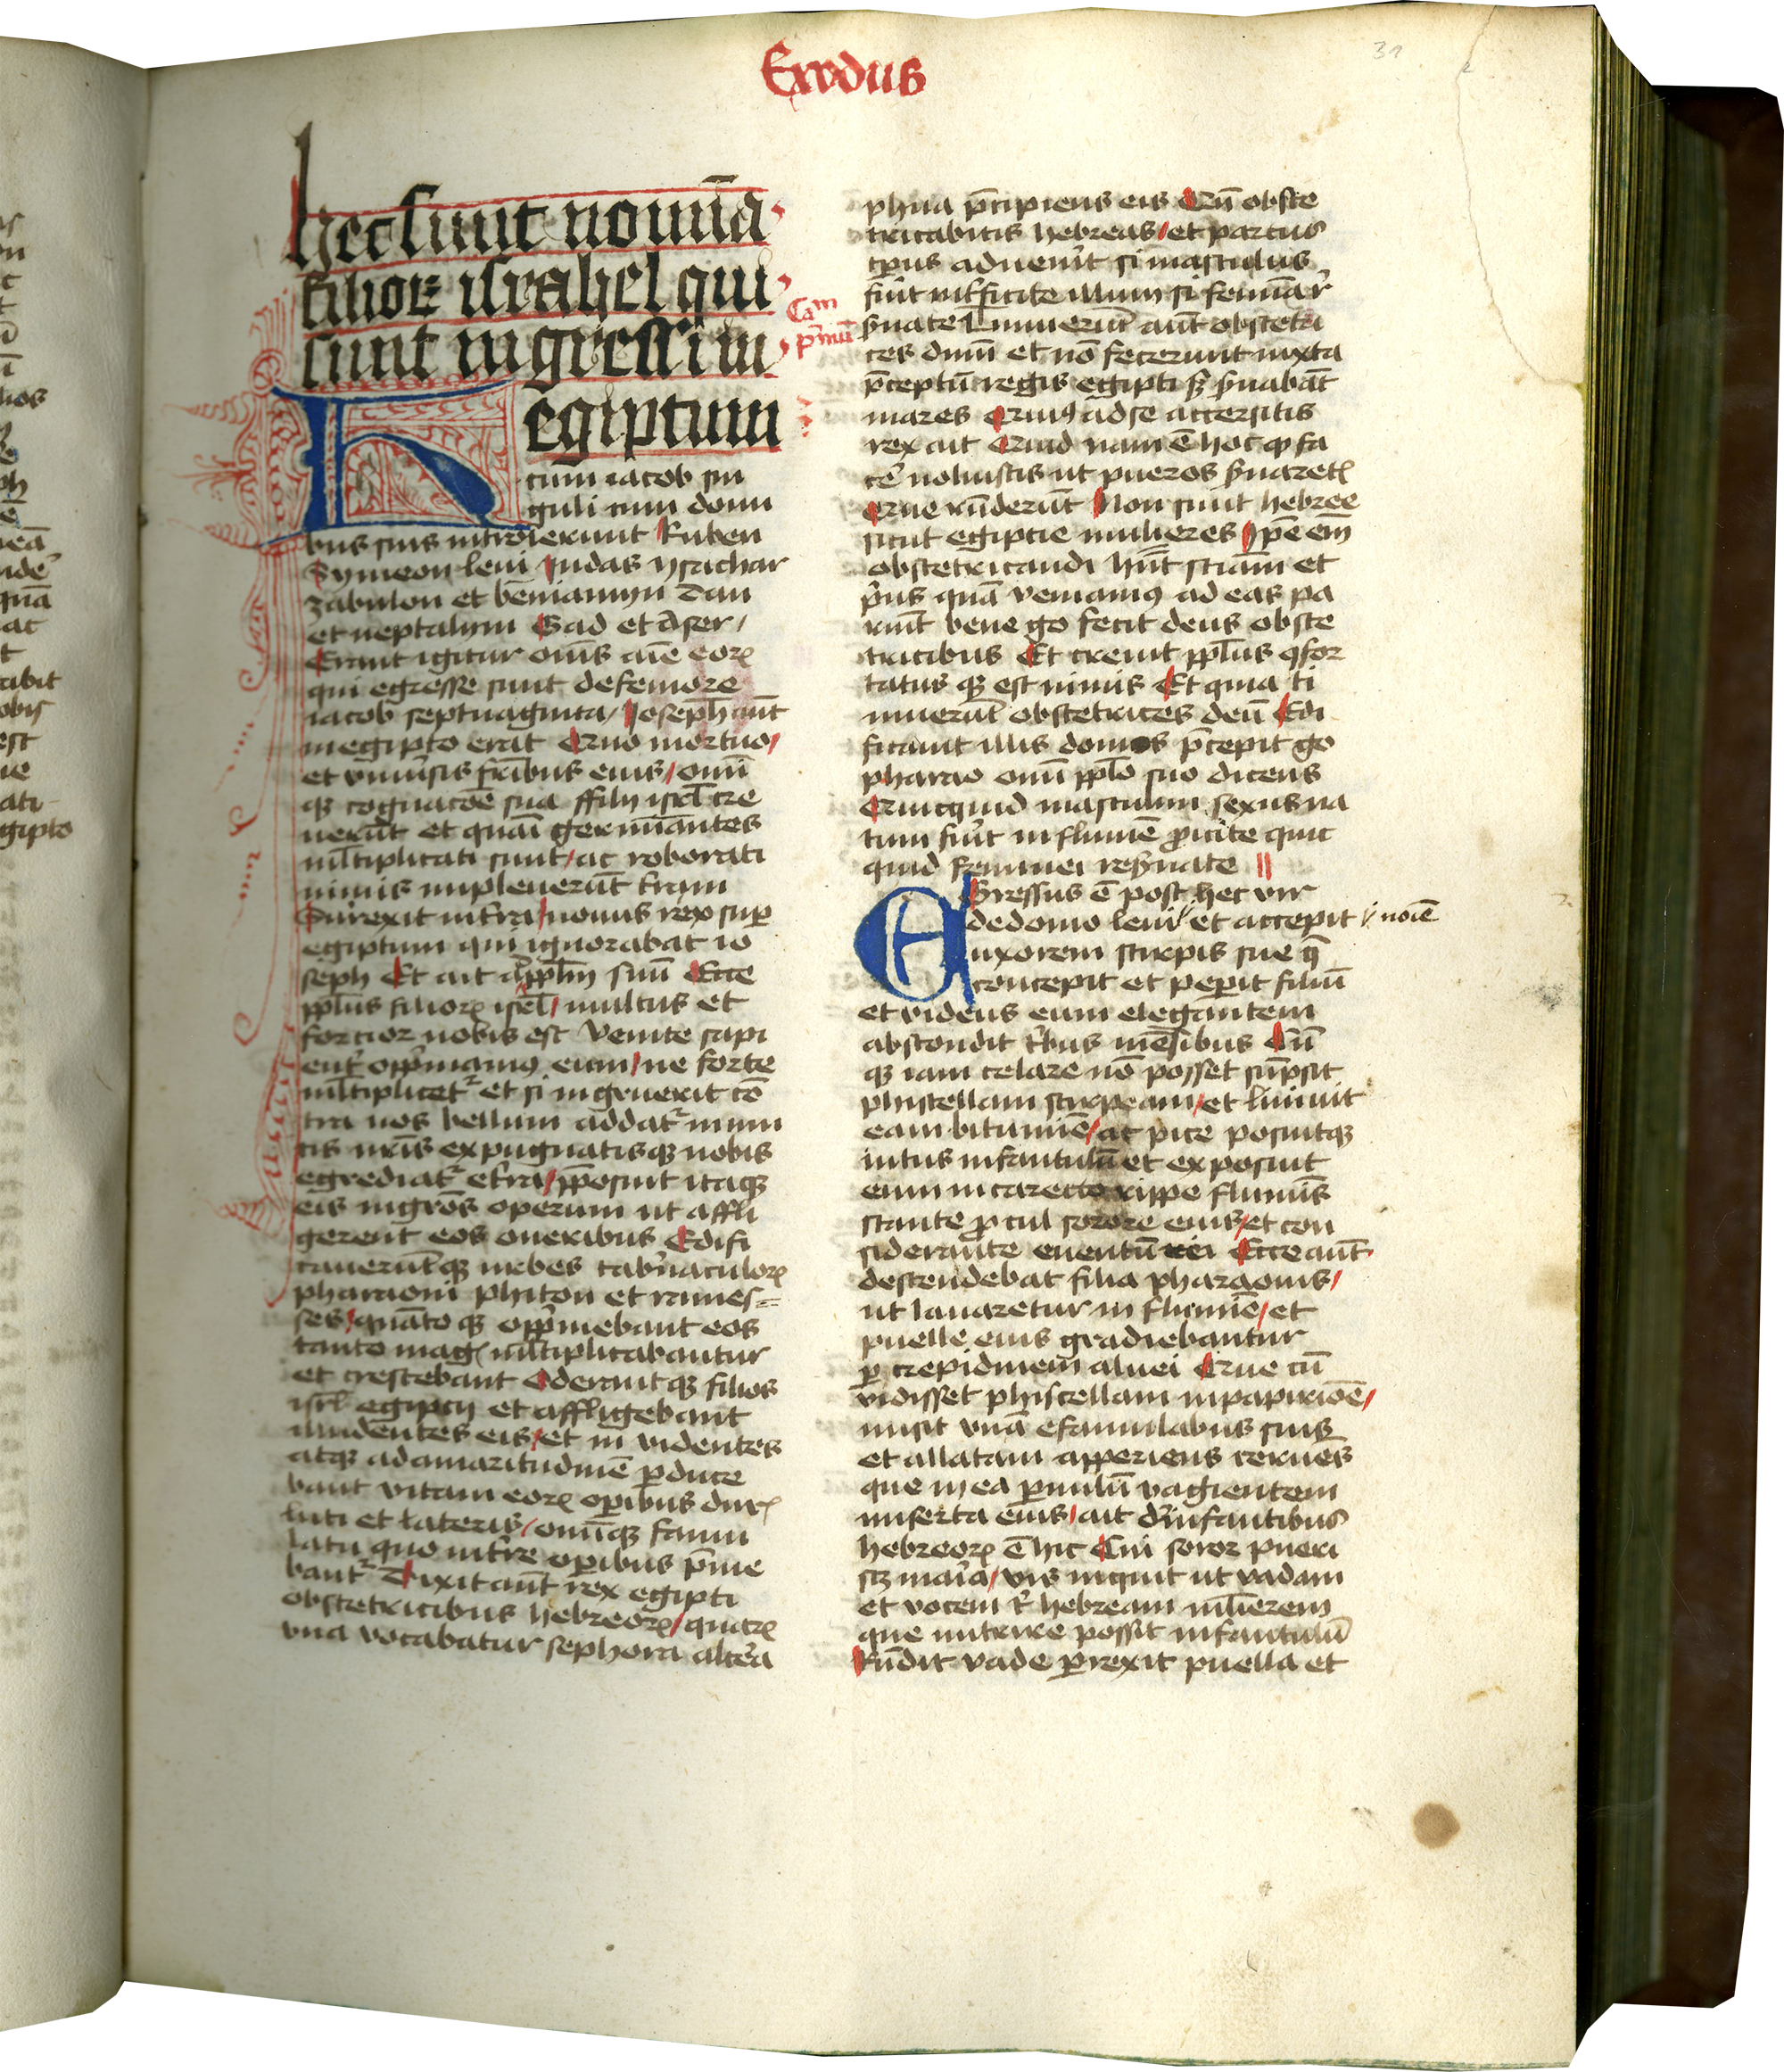 Exodus
31
hec sunt nomīa
filioꝝ israhel qui
sunt ingressi in
egiptum
Cam
pͥmū
cum iacob sin
guli cum domi
bus suis introierunt Ruben
Symeon leui Judas ysachar
zabulon et beniamyn Dan
et neptalym Gad et Aser /
Erant igitur om̄s aīe eoꝝ
qui egresse sunt de femore
iacob septuaginta / Joseph aūt
in egipto erāt Quo mortuo /
et vniuͥsis fr̄ibus eius / omī
qꝫ cognacōe sua ffilij isrl̄ cre
uerūt et quasi germinantes
ml̄tiplicati sunt / ac roborati
nimis impleuerūt tram
Surexit intrea / nouus rex suꝑ
egiptum qui ignorabat io
seph Et ait ad ppl̄m suū Ecce
ppl̄us filioꝝ isrl̄ / multus et
forcior nobis est Venite sapi
enter oppͥmamꝰ eum / ne forte
ml̄tiplicetr et si ingruerit cō
tra nos bellum addatr inimi
cis nr̄is expugnatisqꝫ nobis
egrediatr e tra / p̄posuit itaqꝫ
eis mgr̄os operum ut affli
gerent eos oneribus Edifi
caueruntqꝫ urbes tabnaculoꝝ
pharaoni phiton et rames=
ses / quāto qꝫ oppͥmebant eos
tanto magꝭ ml̄tiplicabantur
et crescebant Oderantqꝫ filios
isrl̄ egipcij et affligebant
illudentes eis / et in videntes
atqꝫ ad amaritudinē ꝑduce
bant vitam eoꝝ oꝑibus durꝭ
luti et lateris / omīqꝫ famu
latu quo in tre oꝑibus pͥme
bantr Dixit aūt rex egipti
obstetricibus hebreoꝝ / quaꝝ
vna vocabatur sephora altera
phua p̄cipiens eis Cū obste
tricabitis hebreas / et partus
tp̄us aduenͥit si masculus
fuͥit intͥficite illum si femina r̄
ẜuate Timuerūt aūt obstetri
ces dnm̄ et nō fecerunt iuxta
p̄ceptū regis egipti sꝫ ẜuabāt
mares Quibꝰ ad se accersitis
rex ait Quid nam ē hoc qꝫ fa
cē noluistis ut pueros ẜuaretꝭ
Que rn̄derūt Non sunt hebree
sicut egipcie mulieres Ip̄e em̄
obstetricandi hn̄t sciam̄ et
pͥus quā veniamꝰ ad eas pa
riūt bene gͦ fecit deus obste
tricibus Et creuit ppl̄us ꝯfor
tatus qꝫ est nimis Et quia ti
muerūt obstetrices deū Edi
ficauit illis domos p̄cepit gͦ
pharao omī ppl̄o suo dicens
Quicquid masculini sexus na
tum fuͥit in flumē ꝓicite quic
quid feminei reẜuate
Gressus ē post hec vir
de domo leui et accepit noīe
uxorem stirpis sue q̄
concepit et peꝑit filiū
et videns eum elegantem
abscondit tͥbus mēsibus Cū
qꝫ iam celare nō posset sūpsit
phiscellam scirpeam / et liniuit
eam bitumīe / ac pice posuitqꝫ
intus infantulū et exposuit
eum in carecto rippe flumīs
stante ꝓcul sorore eius / et con
siderante euentū rei Ecce aūt
descendebat filia pharaonis /
ut lauaretur in flumīe / et
puelle eius gradiebantur
ꝑ crepidinem aluei Que cū
vidisset phiscellam in papirione /
misit vnā e famulabus suis
et allatam apperiens cernes
que in ea ꝑuulū vagientem
miserta eius / ait d' infantibus
hebreoꝝ ē hic Cui soror pueri
scꝫ maria / vis inquit ut vadam
et vocem tͥ hebream ml̄ierem
que nutrire possit infantulū
Rn̄dit vade ꝑrexit puella et